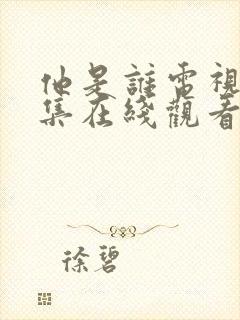 他是誰電視
集在綫觀看
徐碧